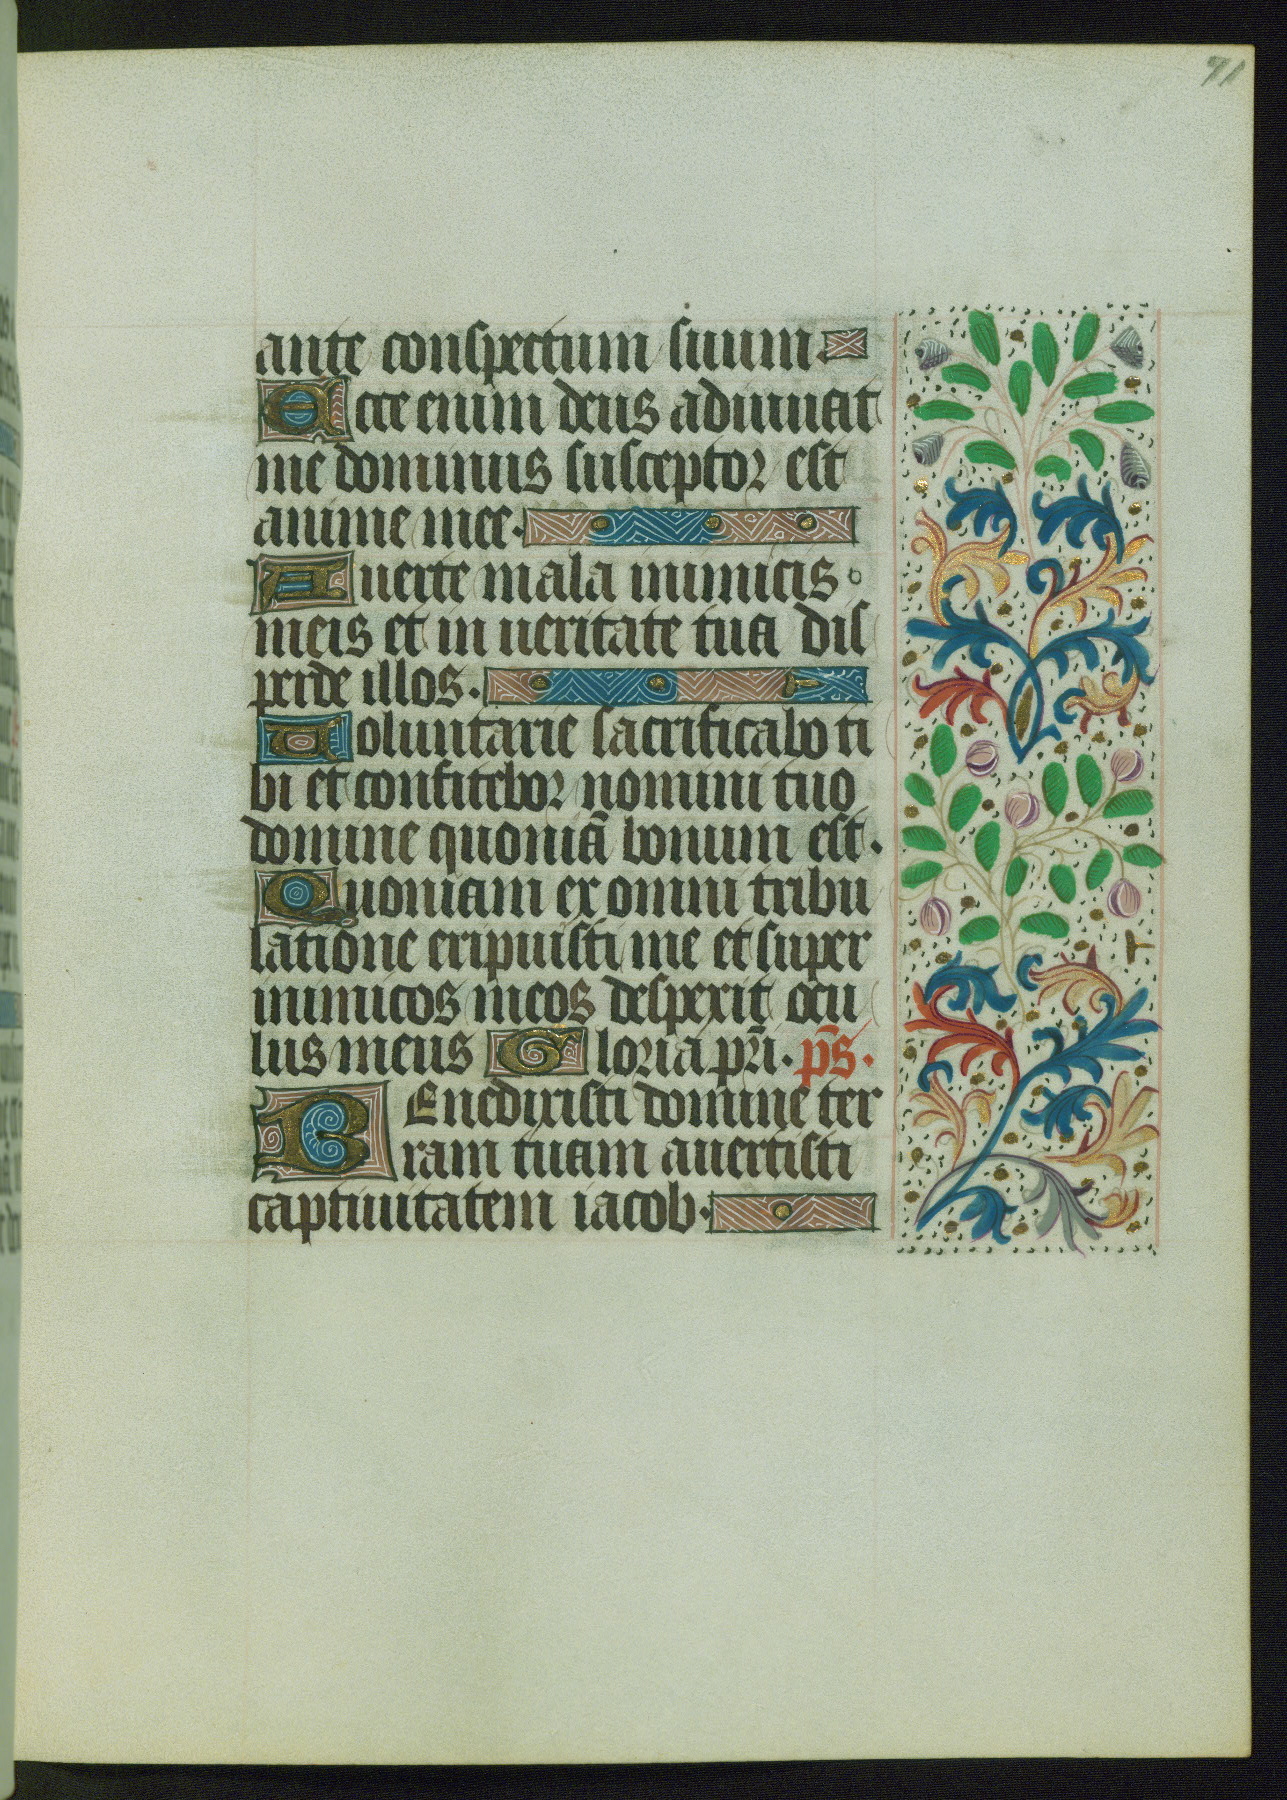 71
ante conspectum suum.
Ecce enim deus adiuuat
me dominus susceptor est
anime mee.
Auerte mala inimicis
meis et in ueritate tua dis
perde illos.
Uoluntarie sacrificabo ti
bi et confitebor nomini tuo
domine quoniā bonum est.
Quoniam ex omni tribu
latione eripuisti me et super
inimicos meos despexit ocu
lus meus Gloria pr̄i. p̄s.
BEnedixisti domine ter
ram tuam auertisti
captiuitatem iacob.